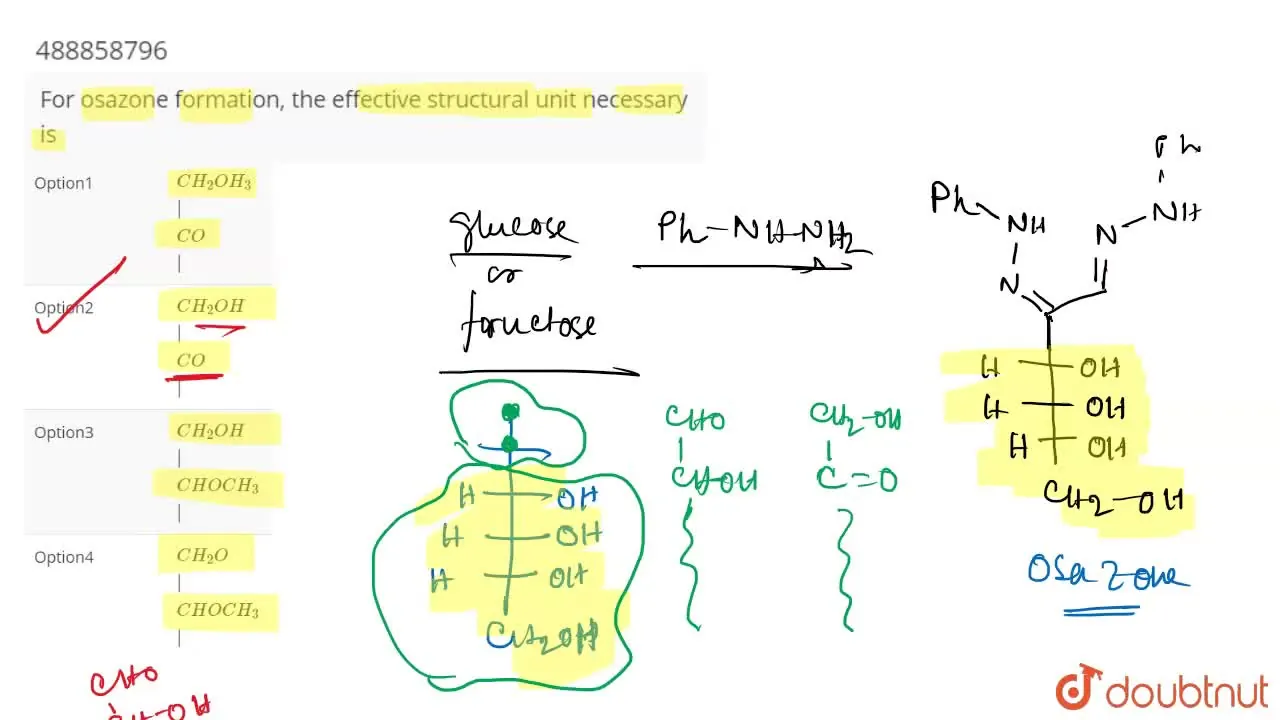 488858796
For osazone formation, the effective structural unit necessary
is
Option1
CH₂OH₃
CO
Option2
CH₂OH
CO
Option3
CH₂OH
CHOCH₃
Option4
CH₂O
CHOCH₃
CHO
CH-OH
glucose
or
fructose
Ph-NH-NH₂
H OH
H OH
H OH
CH₂OH
CHO
CHOH
CH₂-OH
C=O
Ph
Ph
NH
NH
N
N
H OH
H OH
H OH
CH₂-OH
Osazone
doubtnut